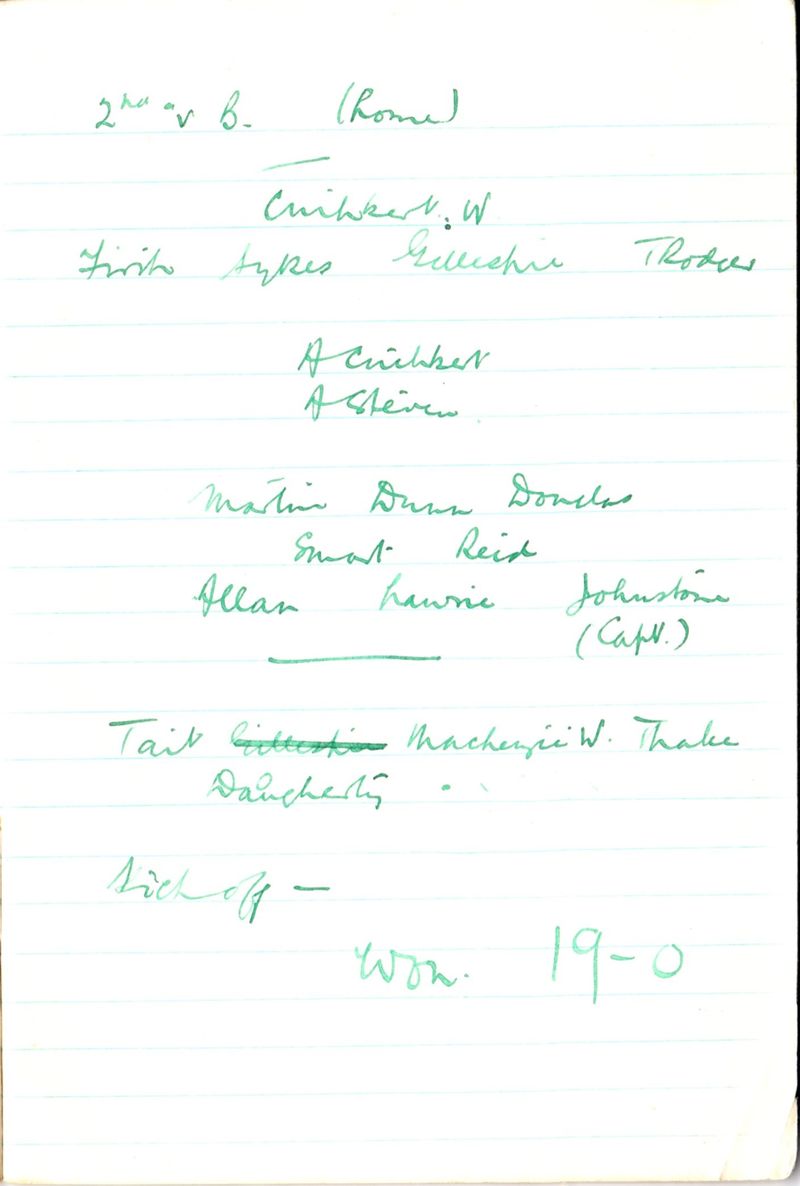 2nd v B. (home)
Cuthbert. W
Firth Sykes Gillespie T Rodger
A Cuthbert
A Steven
Martin Dunn Douglas
Smart Reid
Allan Lawrie Johnstone
(Capt.)
Tait Gillespie Mackenzie W. Thake
Daugherty
off —
Won. 19-0